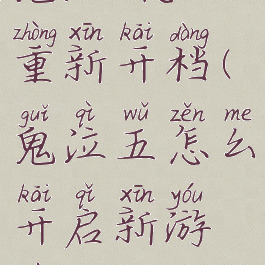 zhòng xīn kāi dàng
重新开档(
guǐ qì wǔ zěn me
鬼泣五怎么
kāi qǐ xīn yóu
开启新游